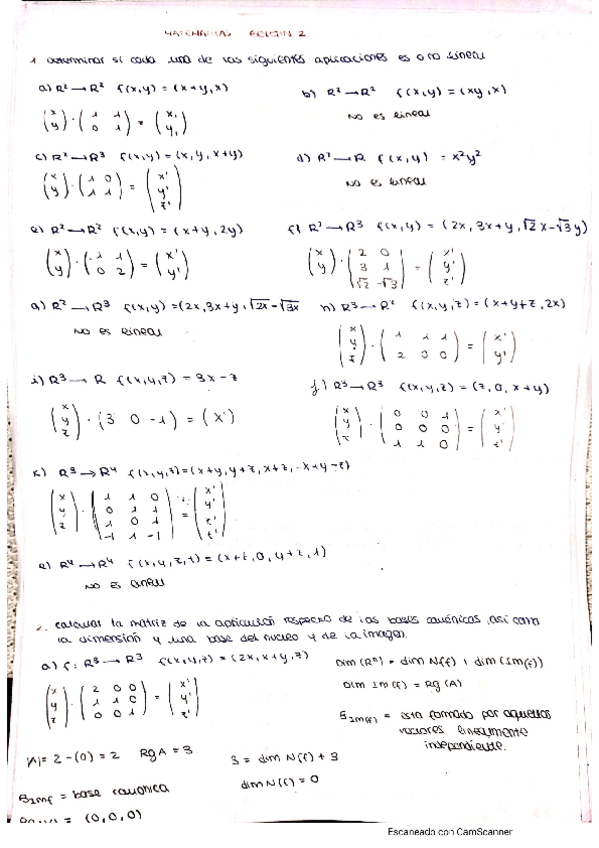 MATEMATICAS BOLETIN 2
1. determinar si cada una de las siguientes aplicaciones es o no lineal
a) R² → R² f(x,y) = (x+y, x)
b) R² → R² f(x,y) = (xy, x)
(x y) · (1 1 0 1) = (x, y,)
No es lineal
c) R² → R³ f(x,y) = (x, y, x+y)
d) R² → R f(x,y) = x²y²
(x y) · (1 0 1 1) = (x' y' z')
No es lineal
e) R² → R² f(x,y) = (x+y, 2y)
f) R² → R³ f(x,y) = (2x, 3x+y, √2x-√3y)
(x y) · (1 1 0 2) = (x' y')
(x y) · (2 0 3 1 √2 -√3) = (x' y' z')
g) R² → R³ f(x,y) = (2x, 3x+y, √2x-√3x
h) R³ → R² f(x,y,z) = (x+y+z, 2x)
No es lineal
(x y z) · (1 1 1 2 0 0) = (x' y')
i) R³ → R f(x,y,z) = 3x-z
j) R³ → R³ f(x,y,z) = (z, 0, x+y)
(x y z) · (3 0 -1) = (x')
(x y z) · (0 0 1 0 0 0 1 1 0) = (x' y' z')
k) R³ → R⁴ f(x,y,z) = (x+y, y+z, x+z, -x+y-z)
(x y z) · (1 1 0 0 1 1 1 0 1 -1 1 -1) = (x' y' z' t')
l) R⁴ → R⁴ f(x,y,z,t) = (x+t, 0, y+z, 1)
No es lineal
2. calcular la matriz de la aplicación respecto de las bases canónicas, así como
la dimensión y una base del nucleo y de la imagen.
a) f: R³ → R³ f(x,y,z) = (2x, x+y, z)
dim (Rⁿ) = dim N(f) + dim (Im(f))
Dim Im(f) = Rg (A)
(x y z) · (2 0 0 1 1 0 0 0 1) = (x' y' z')
B Im(f) = esta formado por aquellos
vectores linealmente
independiente.
|A| = 2-(0) = 2 Rg A = 3
3 = dim N(f) + 3
dim N(f) = 0
B Imf = base canonica
= (0,0,0)
Escaneado con CamScanner